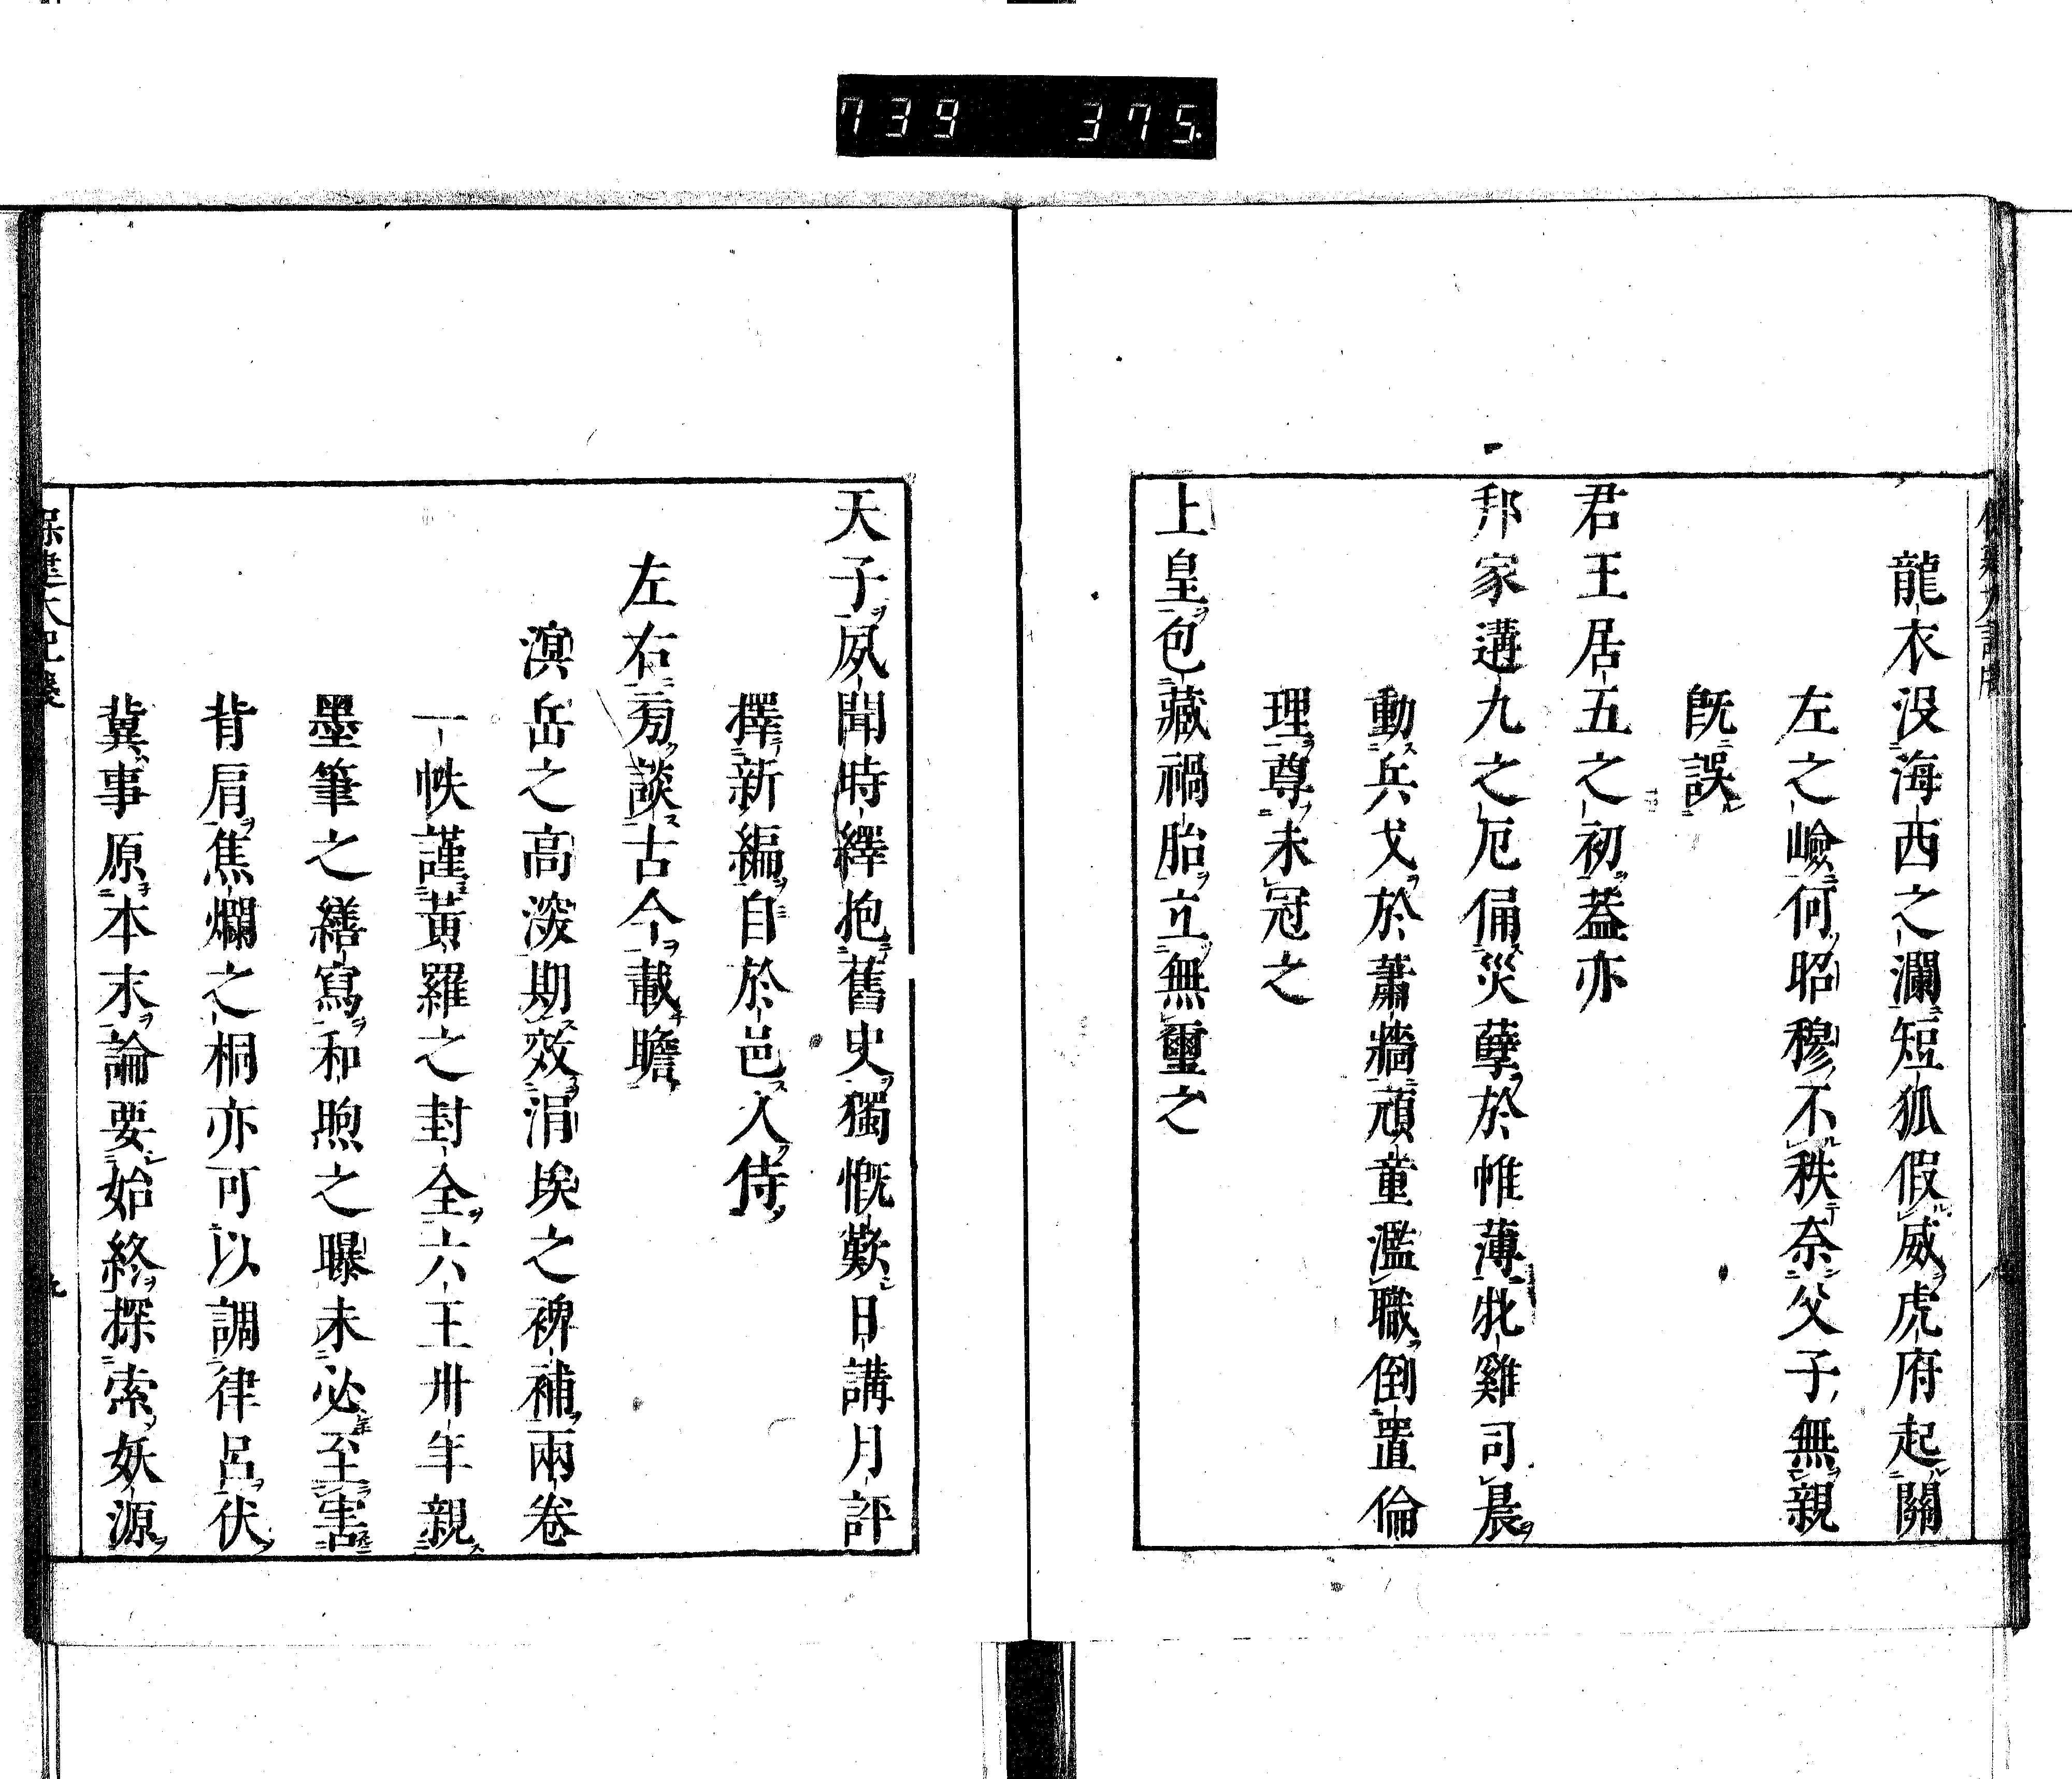 739 375
龍衣沒海西之瀾短狐假威虎府起關
左之嶮何昭穆不秩奈父子無親
既誤
君王居五之初蓋亦
邦家遘九之厄俑災孽於帷薄牝雞司晨
動兵戈於蕭牆頑童濫職倒置倫
理尊未冠之
上皇包藏禍胎立無璽之
天子夙聞時繹抱舊史獨慨歎日講月評
擇新編自於邑入侍
左右旁談古今載瞻
溟岳之高深期效涓埃之裨補兩卷
一帙謹黃羅之封全六王卅年親
墨筆之繕寫和煦之曝未必至害
背肩焦爛之桐亦可以調律呂伏
冀事原本末論要始終探索妖源
保建大記
九